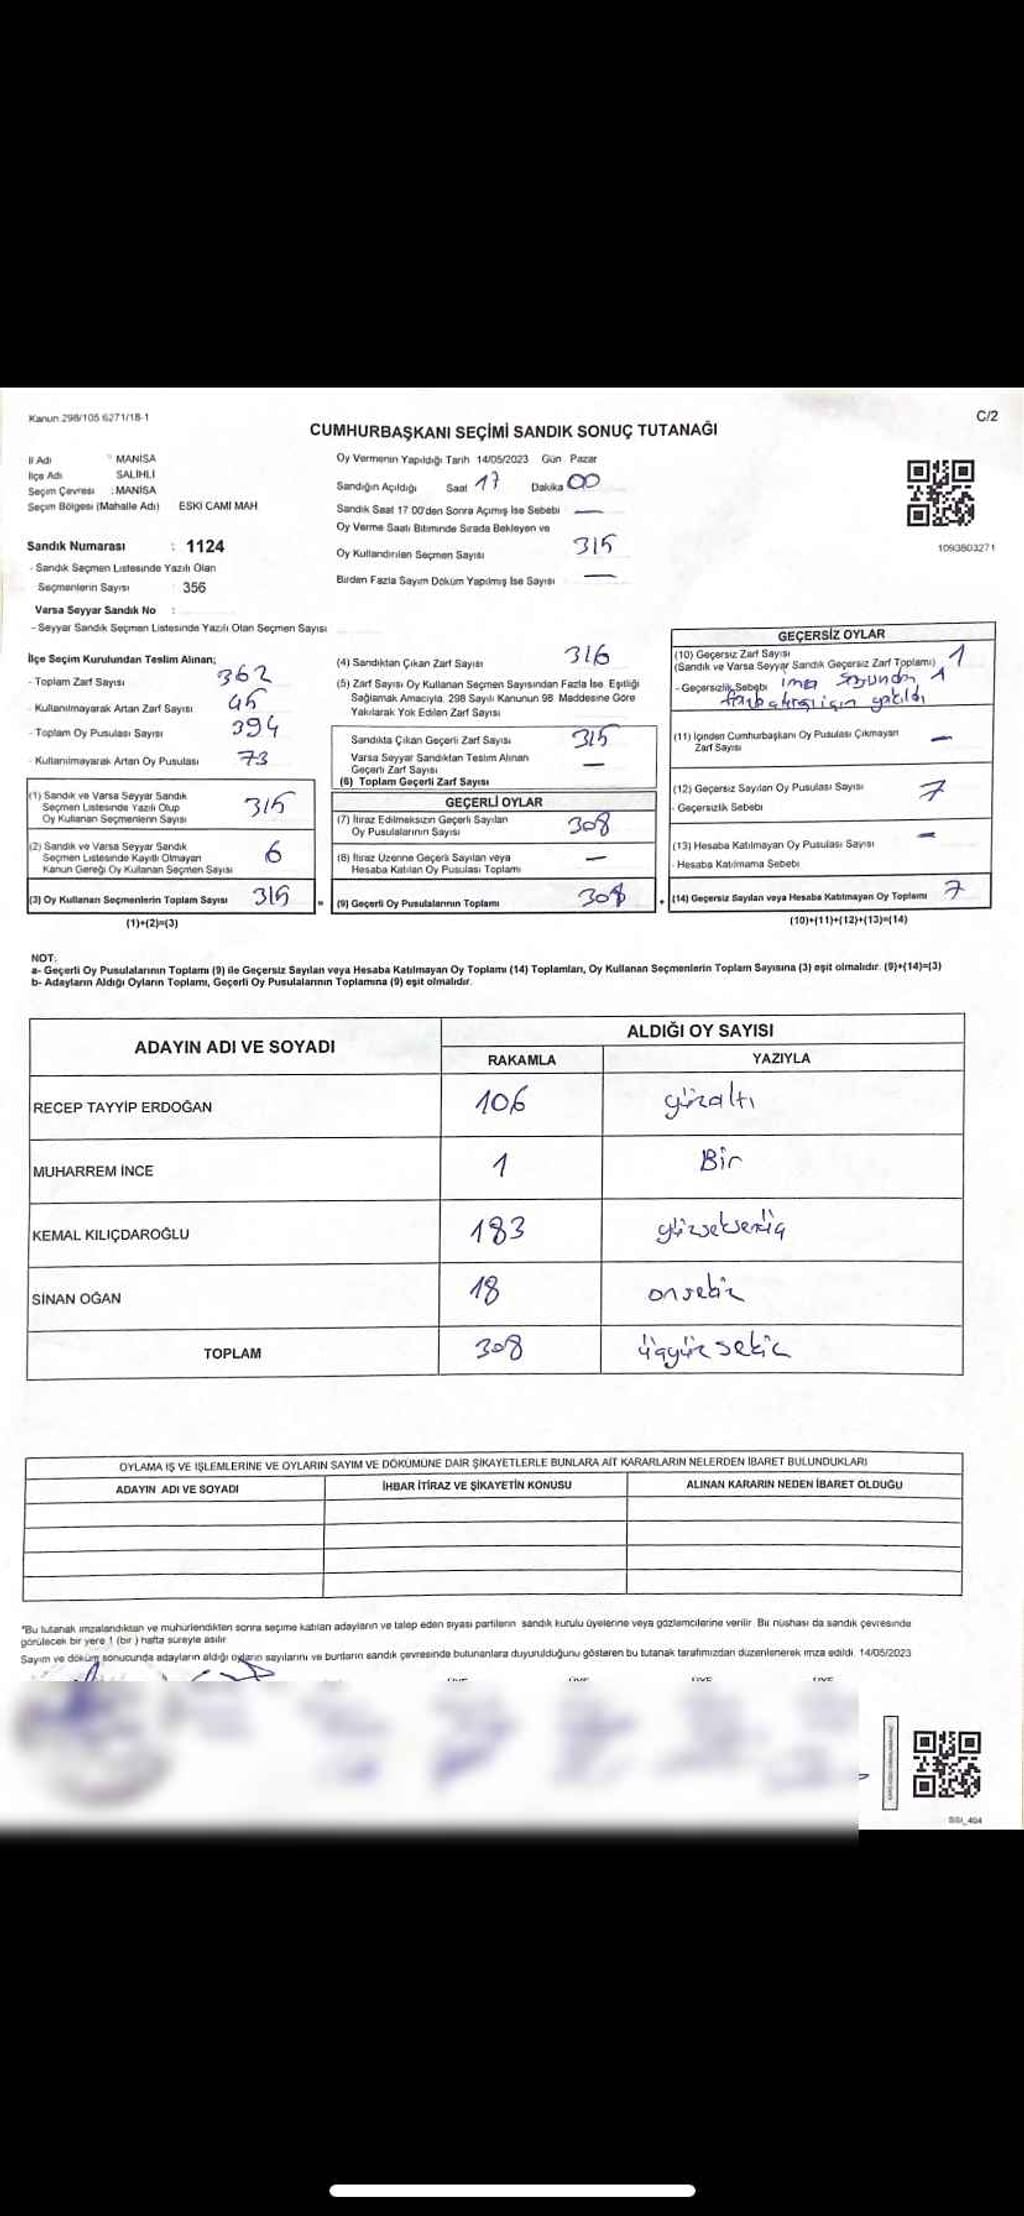 Kanun 298/105 6271/18-1
C/2
CUMHURBAŞKANI SEÇİMİ SANDIK SONUÇ TUTANAĞI
İl Adı : MANİSA
İlçe Adı SALİHLİ
Seçim Çevresi : MANİSA
Seçim Bölgesi (Mahalle Adı) ESKİ CAMİ MAH
Sandık Numarası : 1124
- Sandık Seçmen Listesinde Yazılı Olan
Seçmenlerin Sayısı : 356
Varsa Seyyar Sandık No :
- Seyyar Sandık Seçmen Listesinde Yazılı Olan Seçmen Sayısı
Oy Vermenin Yapıldığı Tarih 14/05/2023 Gün Pazar
Sandığın Açıldığı Saat 17 Dakika 00
Sandık Saat 17 00'den Sonra Açımış İse Sebebi —
Oy Verme Saati Bitiminde Sırada Bekleyen ve
Oy Kullandırılan Seçmen Sayısı 315
Birden Fazla Sayım Döküm Yapılmış İse Sayısı —
1093803271
İlçe Seçim Kurulundan Teslim Alınan;
- Toplam Zarf Sayısı 362
- Kullanılmayarak Artan Zarf Sayısı 45
- Toplam Oy Pusulası Sayısı 394
- Kullanılmayarak Artan Oy Pusulası 73
(1) Sandık ve Varsa Seyyar Sandık
Seçmen Listesinde Yazılı Olup
Oy Kullanan Seçmenlerin Sayısı 315
(2) Sandık ve Varsa Seyyar Sandık
Seçmen Listesinde Kayıtlı Olmayan
Kanun Gereği Oy Kullanan Seçmen Sayısı 6
(3) Oy Kullanan Seçmenlerin Toplam Sayısı 315 =
(1)+(2)=(3)
(4) Sandıktan Çıkan Zarf Sayısı 316
(5) Zarf Sayısı Oy Kullanan Seçmen Sayısından Fazla İse. Eşitliği
Sağlamak Amacıyla. 298 Sayılı Kanunun 98 Maddesine Göre
Yakılarak Yok Edilen Zarf Sayısı
Sandıkta Çıkan Geçerli Zarf Sayısı 315
Varsa Seyyar Sandıktan Teslim Alınan
Geçerli Zarf Sayısı —
(6) Toplam Geçerli Zarf Sayısı
GEÇERLİ OYLAR
(7) İtiraz Edilmeksizin Geçerli Sayılan
Oy Pusulalarının Sayısı 308
(8) İtiraz Üzerine Geçerli Sayılan veya
Hesaba Katılan Oy Pusulası Toplamı —
(9) Geçerli Oy Pusulalarının Toplamı 308 +
GEÇERSİZ OYLAR
(10) Geçersiz Zarf Sayısı
(Sandık ve Varsa Seyyar Sandık Geçersiz Zarf Toplamı) 1
- Geçersizlik Sebebi imza 1
için yakıldı
(11) İçinden Cumhurbaşkanı Oy Pusulası Çıkmayan
Zarf Sayısı —
(12) Geçersiz Sayılan Oy Pusulası Sayısı 7
- Geçersizlik Sebebi
(13) Hesaba Katılmayan Oy Pusulası Sayısı —
- Hesaba Katılmama Sebebi
(14) Geçersiz Sayılan veya Hesaba Katılmayan Oy Toplamı 7
(10)+(11)+(12)+(13)=(14)
NOT:
a- Geçerli Oy Pusulalarının Toplamı (9) ile Geçersiz Sayılan veya Hesaba Katılmayan Oy Toplamı (14) Toplamları, Oy Kullanan Seçmenlerin Toplam Sayısına (3) eşit olmalıdır. (9)+(14)=(3)
b- Adayların Aldığı Oyların Toplamı, Geçerli Oy Pusulalarının Toplamına (9) eşit olmalıdır.
ADAYIN ADI VE SOYADI
ALDIĞI OY SAYISI
RAKAMLA YAZIYLA
RECEP TAYYİP ERDOĞAN 106 yüzaltı
MUHARREM İNCE 1 Bir
KEMAL KILIÇDAROĞLU 183 yüzseksenüç
SİNAN OĞAN 18 onsekiz
TOPLAM 308 üçyüz sekiz
OYLAMA İŞ VE İŞLEMLERİNE VE OYLARIN SAYIM VE DÖKÜMÜNE DAİR ŞİKAYETLERLE BUNLARA AİT KARARLARIN NELERDEN İBARET BULUNDUKLARI
ADAYIN ADI VE SOYADI İHBAR İTİRAZ VE ŞİKAYETİN KONUSU ALINAN KARARIN NEDEN İBARET OLDUĞU
*Bu tutanak imzalandıktan ve mühürlendikten sonra seçime katılan adayların ve talep eden siyasi partilerin sandık kurulu üyelerine veya gözlemcilerine verilir. Bir nüshası da sandık çevresinde
görülecek bir yere 1 (bir ) hafta süreyle asılır
Sayım ve döküm sonucunda adayların aldığı oyların sayılarını ve bunların sandık çevresinde bulunanlara duyurulduğunu gösteren bu tutanak tarafımızdan düzenlenerek imza edildi. 14/05/2023